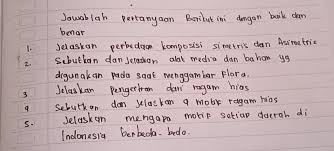 Jawablah pertanyaan Berikut ini dengan baik dan
benar
1. Jelaskan perbedaan komposisi simetris dan Asimetris
2. Sebutkan dan Jelaskan alat media dan bahan yg
digunakan pada saat menggambar Flora.
3 Jelaskan Pengertian dari ragam hias
4 Sebutkan dan Jelaskan 4 motif ragam hias
5. Jelaskan mengapa motif setiap daerah di
Indonesia berbeda-beda.